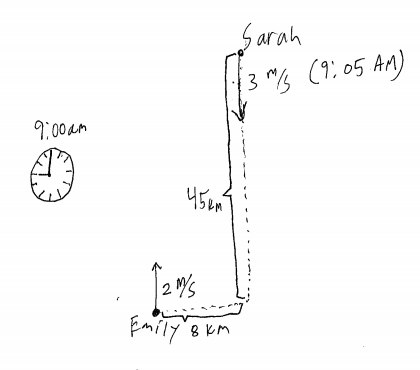 Sarah
3 m/s (9:05 AM)
9:00am
45km
2 m/s
Emily 8 km